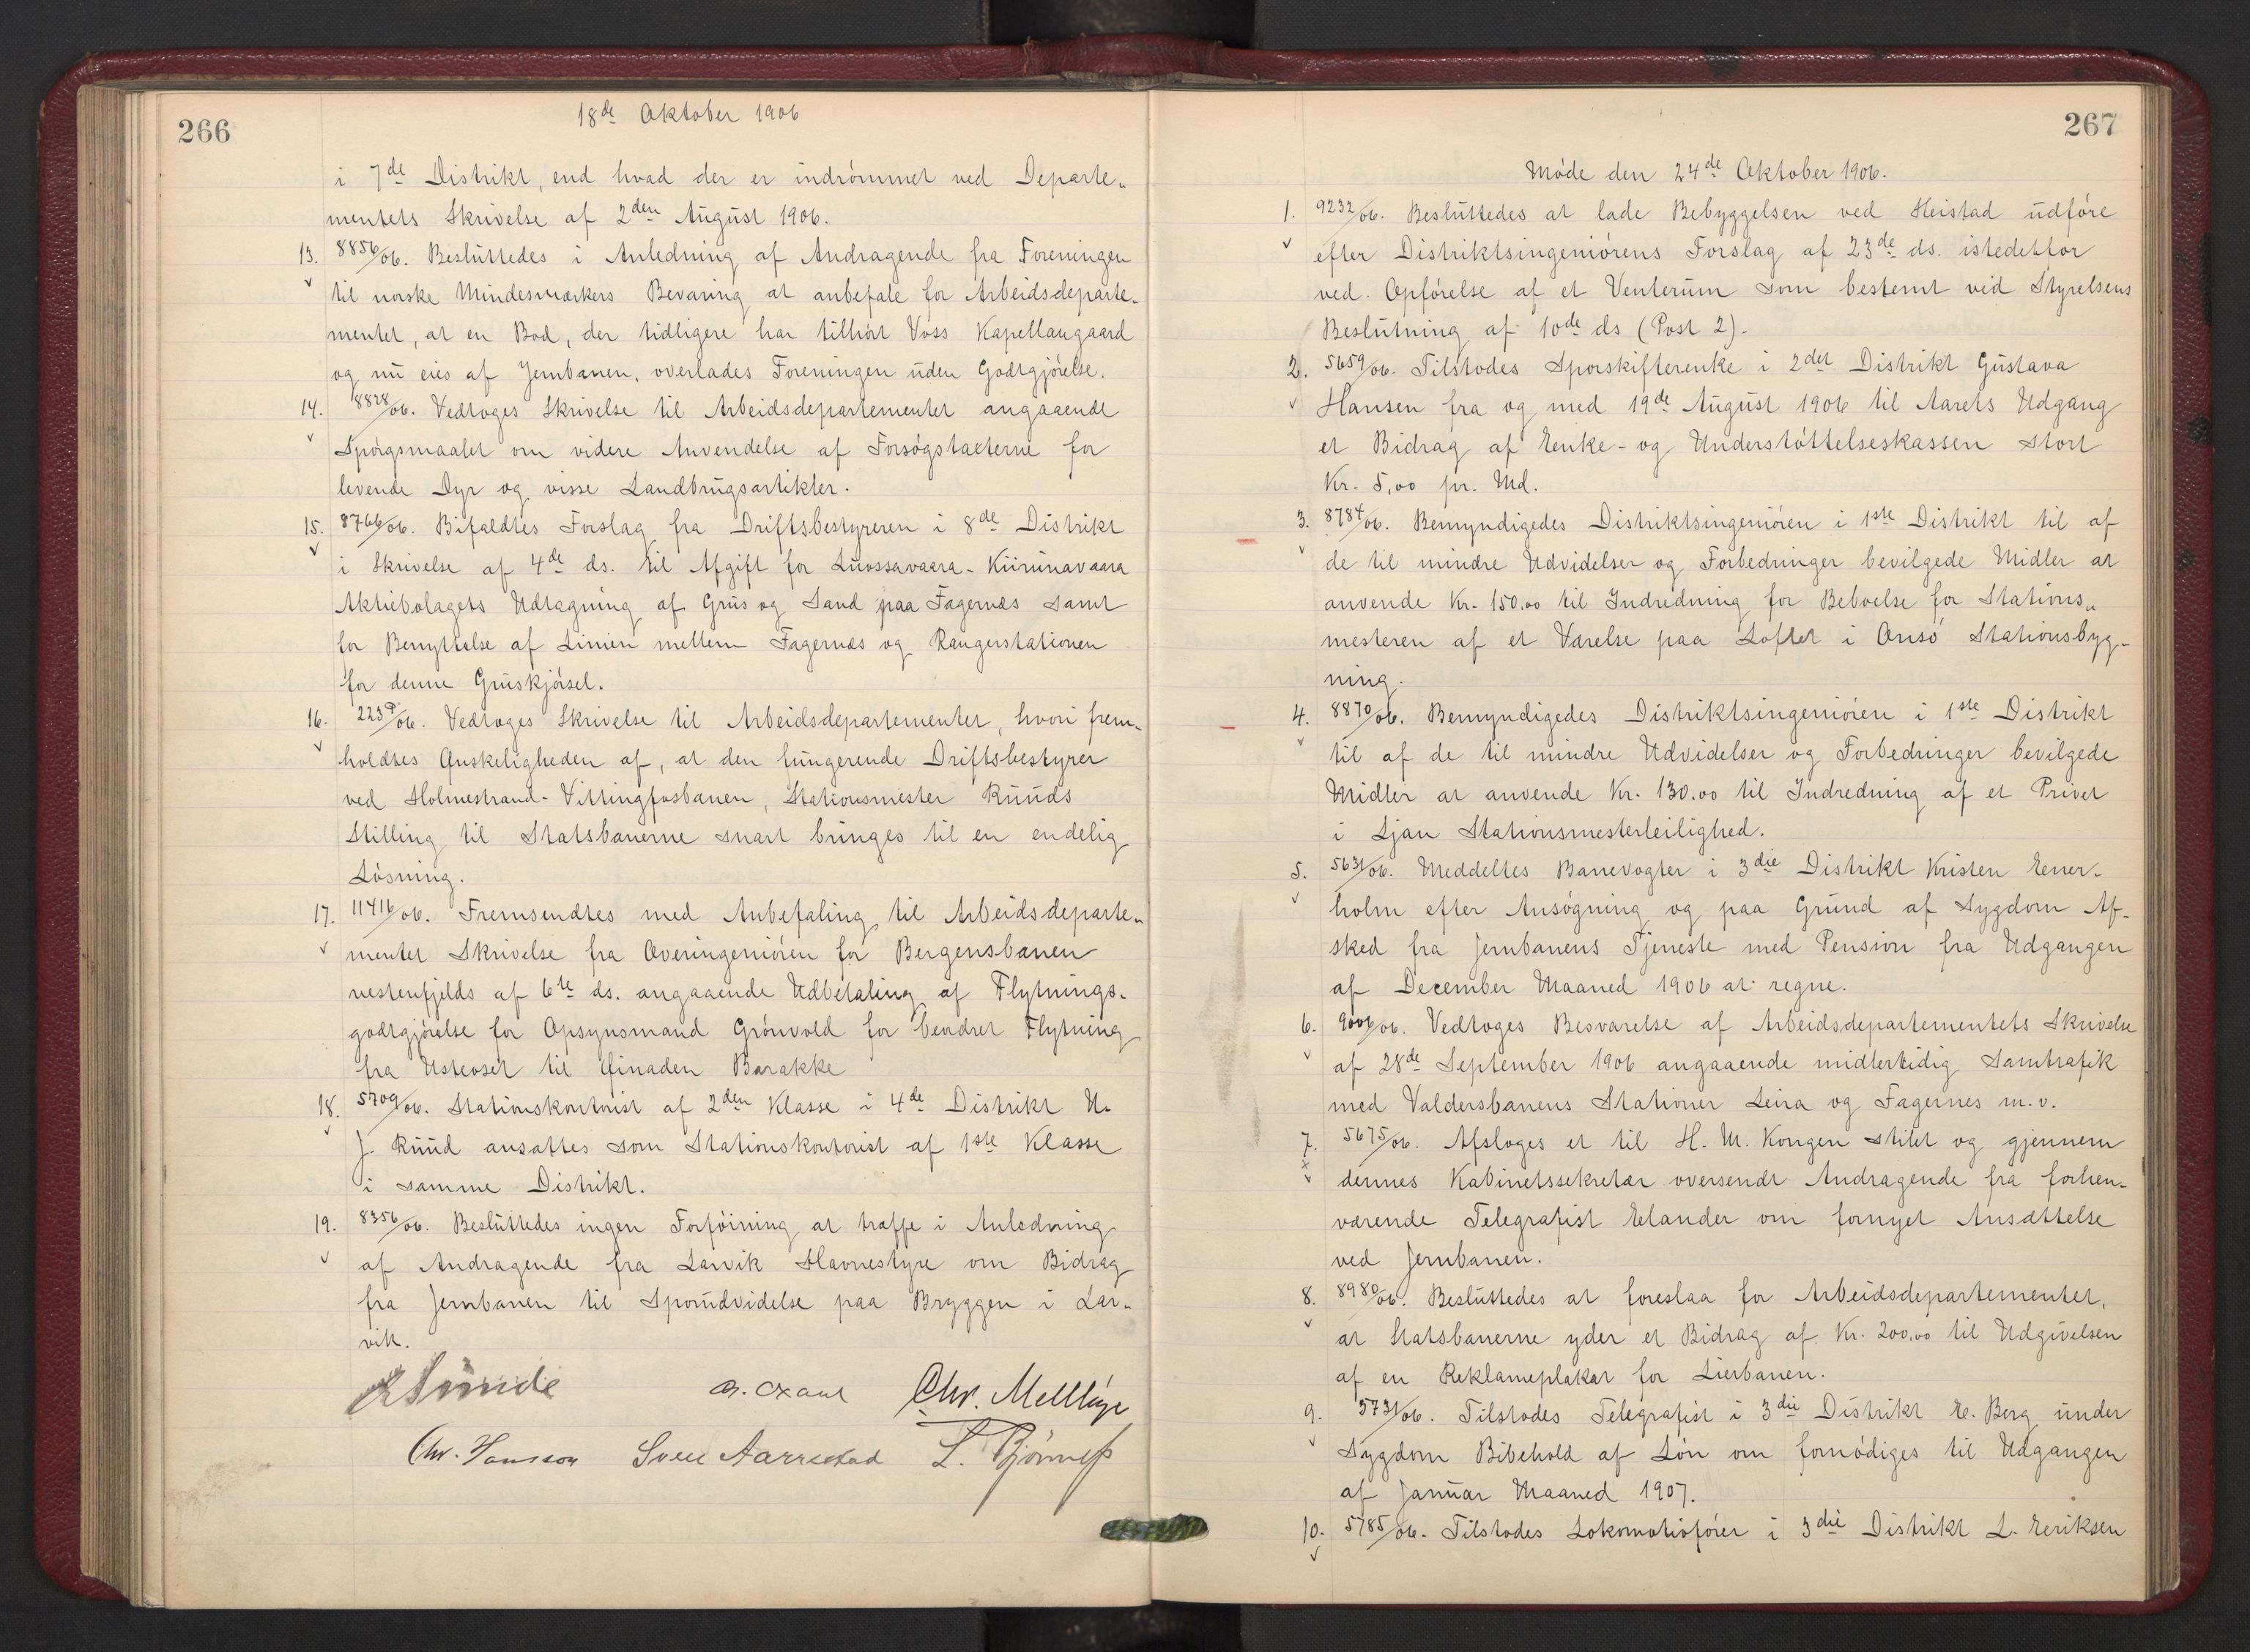 266
18de Oktober 1906
i 7de Distrikt, end hvad der er indrømmet ved Departe-
mentets Skrivelse af 2den August 1906.
13. 8856/06. Besluttedes i Anledning af Andragende fra Foreningen
til norske Mindesmærkers Bevaring at anbefale for Arbeidsdeparte-
mentet, at en Bod, der tidligere har tilhørt Voss Kapellangaard
og nu eies af Jernbanen, overlades Foreningen uden Godtgjørelse.
14. 8828/06. Vedtoges Skrivelse til Arbeidsdepartementet angaaende
Spørgsmaalet om videre Anvendelse af Forsøgstaxterne for
levende Dyr og visse Landbrugsartikler.
15. 8766/06. Bifaldtes Forslag fra Driftsbestyreren i 8de Distrikt
i Skrivelse af 4de ds. til Afgift for Luossavaara-Kiirunavaara
Aktiebolagets Udtagning af Grus og Sand paa Fagernæs samt
for Benyttelse af Linien mellem Fagernæs og Rangerstationen
for denne Gruskjørsel.
16. 223P/06. Vedtoges Skrivelse til Arbeidsdepartementet, hvori frem-
holdtes Ønskeligheden af, at den fungerende Driftsbestyrer
ved Holmestrand-Vittingfosbanen, Stationsmester Ruuds
Stilling til Statsbanerne snart bringes til en endelig
Løsning.
17. 11416/06. Fremsendtes med Anbefaling til Arbeidsdeparte-
mentet Skrivelse fra Overingeniøren for Bergensbanen
vestenfjelds af 6te ds. angaaende Udbetaling af Flytnings-
godtgjørelse for Opsynsmand Grønvold for beordret Flytning
fra Ustevset til Barakke
18. 5709/06. Stationskontorist af 2den Klasse i 4de Distrikt U.
J. Ruud ansattes som Stationskontorist af 1ste Klasse
i samme Distrikt.
19. 8356/06. Besluttedes ingen Forføining at træffe i Anledning
af Andragende fra Larvik Havnestyre om Bidrag
fra Jernbanen til Sporudvidelse paa Bryggen i Lar-
vik.
Chr. Mellbye
Chr. Hansson Sven Aarrestad
267
Møde den 24de Oktober 1906.
1. 9232/06. Besluttedes at lade Bebyggelsen ved Heistad udføre
efter Distriktsingeniørens Forslag af 23de ds. istedetfor
ved Opførelse af et Venterum som bestemt ved Styrelsens
Beslutning af 10de ds (Post 2).
2. 5659/06. Tilstodes Sporskifterenke i 2det Distrikt Gustava
Hansen fra og med 19de August 1906 til Aarets Udgang
et Bidrag af Enke- og Understøttelseskassen stort
Kr. 5,00 pr. Md.
3. 8784/06. Bemyndigedes Distriktsingeniøren i 1ste Distrikt til af
de til mindre Udvidelser og Forbedringer bevilgede Midler at
anvende Kr. 150.00 til Indredning for Beboelse for Stations-
mesteren af et Værelse paa Loftet i Onsø Stationsbyg-
ning.
4. 8870/06. Bemyndigedes Distriktsingeniøren i 1ste Distrikt
til af de til mindre Udvidelser og Forbedringer bevilgede
Midler at anvende Kr. 130.00 til Indredning af et Privet
i Ljan Stationsmesterleilighed.
5. 5631/06. Meddeltes Banevogter i 3die Distrikt Kristen Ener-
holm efter Ansøgning og paa Grund af Sygdom Af-
sked fra Jernbanens Tjeneste med Pension fra Udgangen
af December Maaned 1906 at regne.
6. 9006/06. Vedtoges Besvarelse af Arbeidsdepartementets Skrivelse
af 28de September 1906 angaaende midlertidig Samtrafik
med Valdersbanens Stationer Leira og Fagernes m.v.
7. 5675/06. Afsloges et til H. M. Kongen stilet og gjennem
dennes Kabinetssekretær oversendt Andragende fra forhen-
værende Telegrafist Elander om fornyet Ansættelse
ved Jernbanen.
8. 8980/06. Besluttedes at foreslaa for Arbeidsdepartementet,
at Statsbanerne yder et Bidrag af Kr. 200.00 til Udgivelsen
af en Reklameplakat for Lierbanen.
9. 5731/06. Tilstodes Telegrafist i 3die Distrikt E. Berg under
Sygdom Bibehold af Løn om fornødiges til Udgangen
af Januar Maaned 1907.
10. 5785/06. Tilstodes Lokomotivfører i 3die Distrikt L. Eriksen